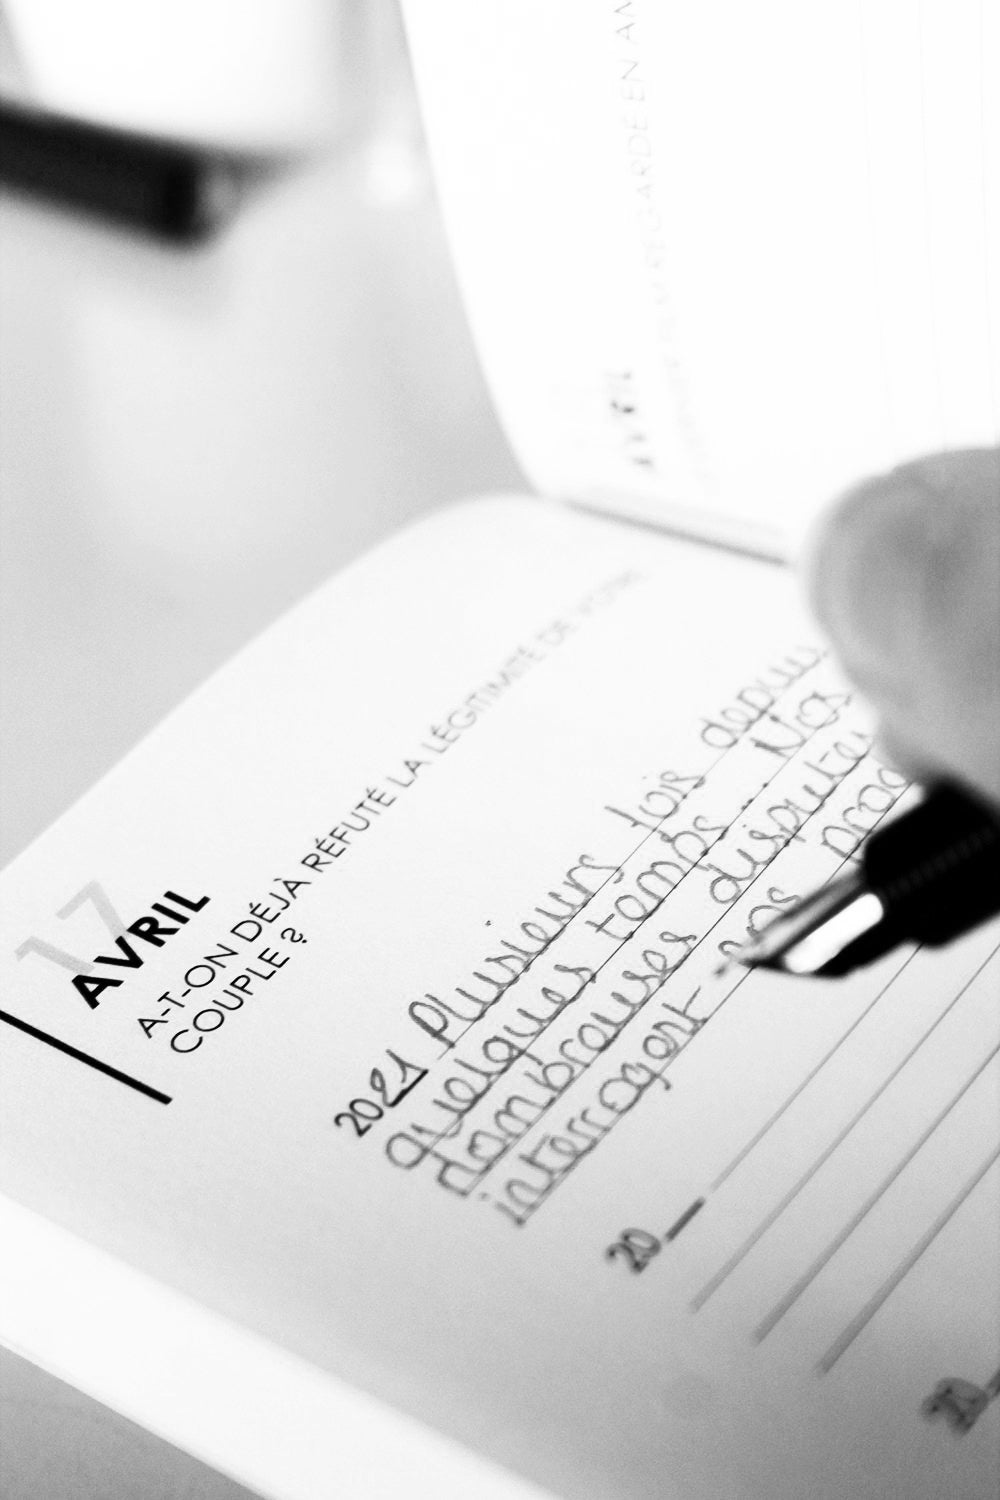 17
AVRIL
A-T-ON DÉJÀ RÉFUTÉ LA LÉGITIMITÉ DE VOTRE
COUPLE ?
2021 Plusieurs fois depuis
quelques temps... Nos
nombreuses disputes
interrogent nos proc
20
20
AVRIL
REGARDÉ EN AM